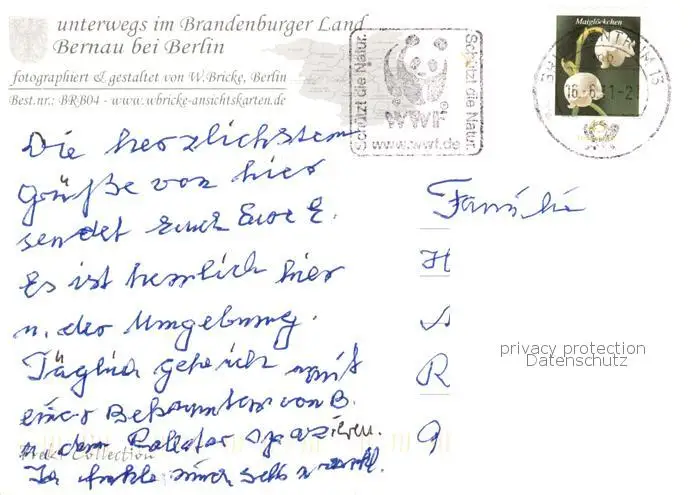 unterwegs im Brandenburger Land
Bernau bei Berlin
fotographiert & gestaltet von W. Bricke, Berlin
Best.nr.: BRB04 - www.wbricke-ansichtskarten.de
Schützt die Natur.
WWF
Schützt die Natur.
www.wwf.de
Maiglöckchen
Die herzlichsten
Grüße von hier
sendet Euch Eure E.
Es ist herrlich hier
u. der Umgebung.
Täglich gehe ich mit
einer Bekannten von B.
u dem Rollator spazieren.
Ich
Collection
Familie
H
A
R
9
privacy protection
Datenschutz